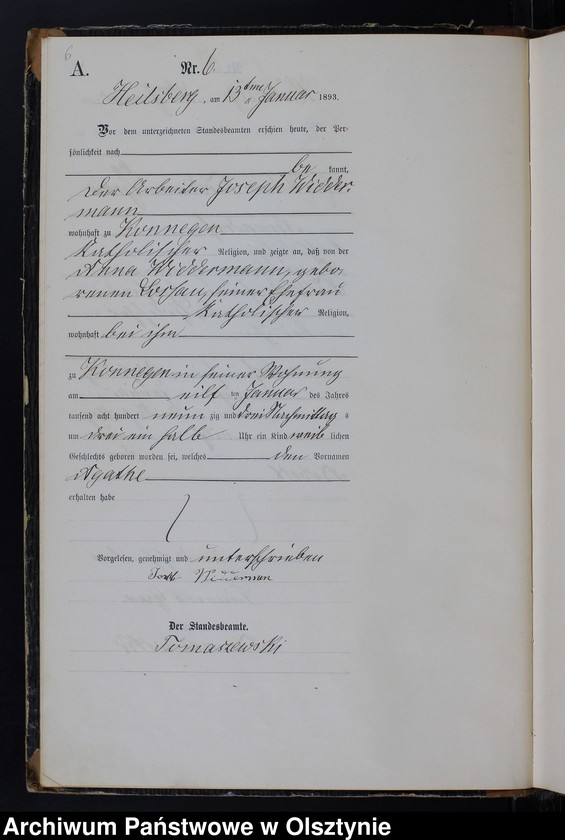 6
A. Nr. 6
Heilsberg, am 13ten Januar 1893.
Vor dem unterzeichneten Standesbeamten erschien heute, der Per-
sönlichkeit nach
be kannt,
der Arbeiter Joseph Widder-
mann
wohnhaft zu Konnegen
Katholischer Religion, und zeigte an, daß von der
Anna Widdermann, gebo-
renen Lossau, seiner Ehefrau
Katholischer Religion,
wohnhaft bei ihm
zu Konnegen in seiner Wohnung
am eilf ten Januar des Jahres
tausend acht hundert neun zig und drei Nachmittag s
um drei ein halb Uhr ein Kind weib lichen
Geschlechts geboren worden sei, welches den Vornamen
Agathe
erhalten habe
Vorgelesen, genehmigt und unterschrieben
Der Standesbeamte.
Tomaszewski
Archiwum Państwowe w Olsztynie